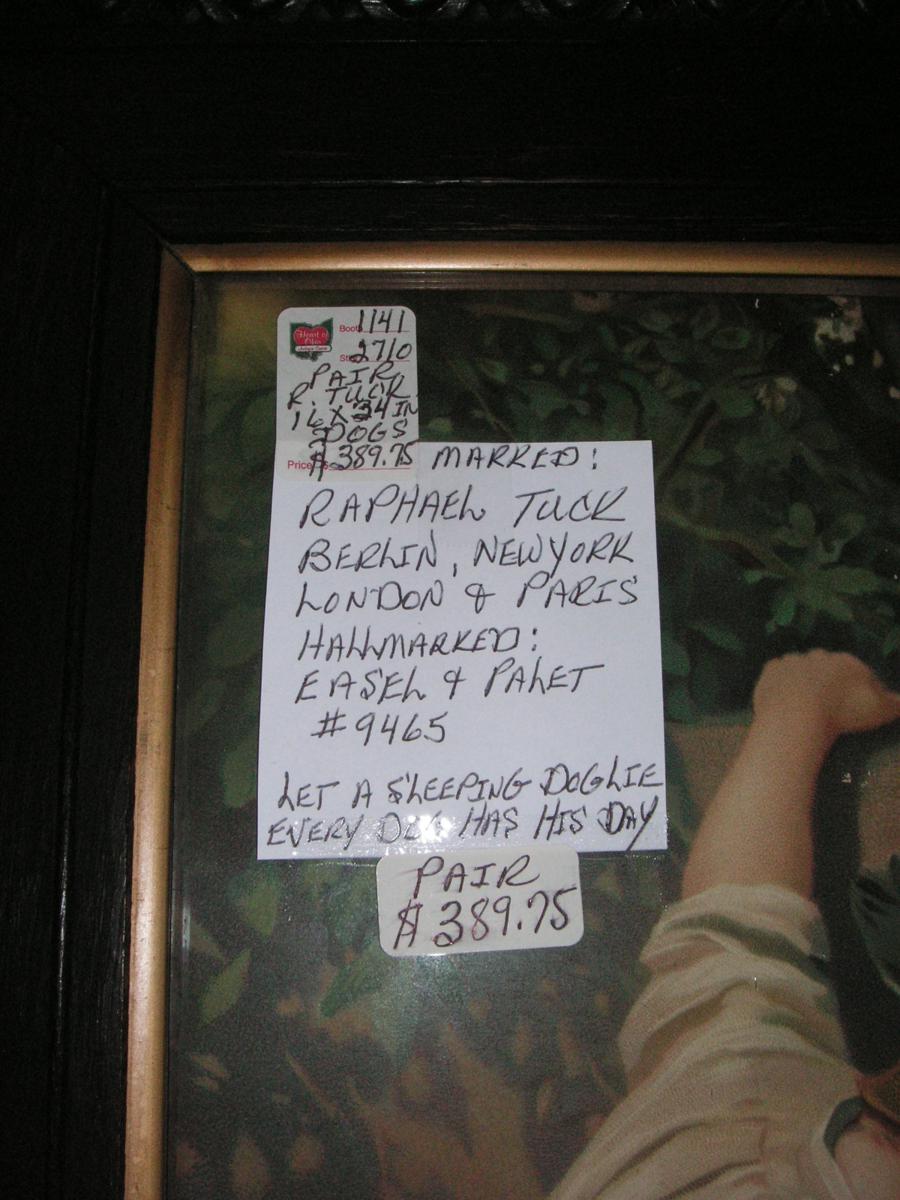 Heart of
Ohio
Booth 1141
St 2710
PAIR
R. TUCK
16 X 34 IN
DOGS
Price $ 389.75
MARKED:
RAPHAEL TUCK
BERLIN, NEWYORK
LONDON & PARIS
HALLMARKED:
EASEL & PALET
#9465
LET A SLEEPING DOG LIE
EVERY DOG HAS HIS DAY
PAIR
$389.75